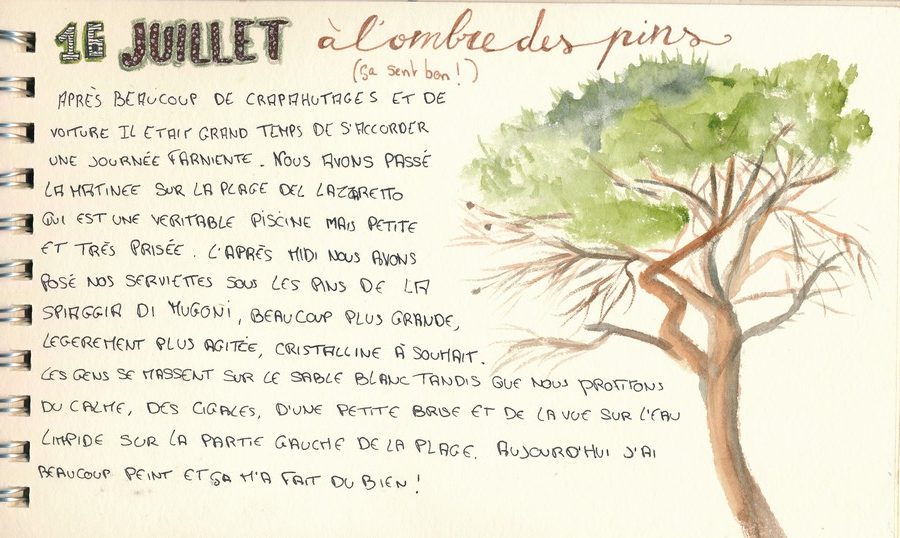 16 JUILLET à l'ombre des pins
(ça sent bon !)
APRÈS BEAUCOUP DE CRAPAHUTAGES ET DE
VOITURE IL ETAIT GRAND TEMPS DE S'ACCORDER
UNE JOURNÉE FARNIENTE. NOUS AVONS PASSÉ
LA MATINEE SUR LA PLAGE DEL LAZARETTO
QUI EST UNE VERITABLE PISCINE MAIS PETITE
ET TRÈS PRISÉE. L'APRÈS MIDI NOUS AVONS
POSÉ NOS SERVIETTES SOUS LES PINS DE LA
SPIAGGIA DI MUGONI, BEAUCOUP PLUS GRANDE,
LEGEREMENT PLUS AGITÉE, CRISTALLINE À SOUHAIT.
LES GENS SE MASSENT SUR LE SABLE BLANC TANDIS QUE NOUS PROFITONS
DU CALME, DES CIGALES, D'UNE PETITE BRISE ET DE LA VUE SUR L'EAU
LIMPIDE SUR LA PARTIE GAUCHE DE LA PLAGE. AUJOURD'HUI J'AI
BEAUCOUP PEINT ET ÇA M'A FAIT DU BIEN !